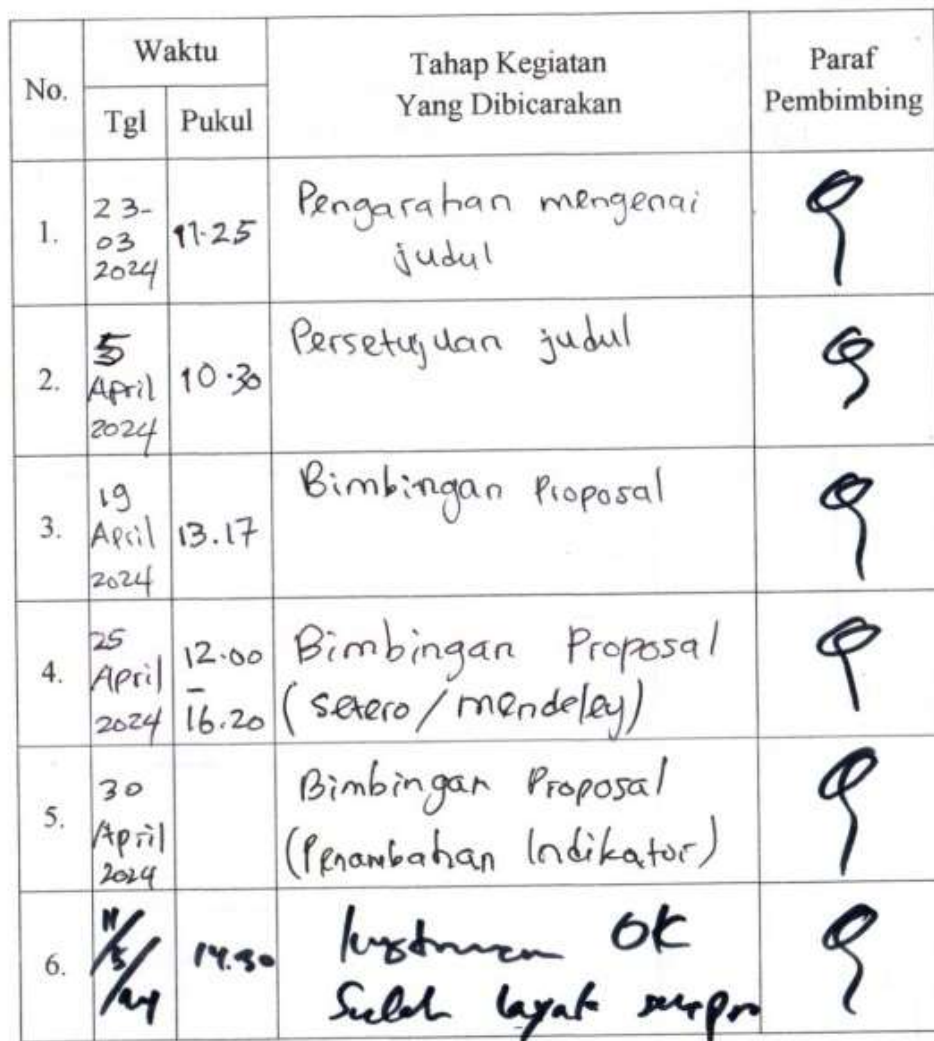 No.
Waktu
Tgl
Pukul
Tahap Kegiatan
Yang Dibicarakan
Paraf
Pembimbing
1.
23-
03
2024
11.25
Pengarahan mengenai
judul
2.
5
April
2024
10.30
Persetujuan judul
3.
19
April
2024
13.17
Bimbingan Proposal
4.
25
April
2024
12.00
-
16.20
Bimbingan Proposal
(setero/mendeley)
5.
30
April
2024
Bimbingan Proposal
(Penambahan Indikator)
6.
OK
layak sempro